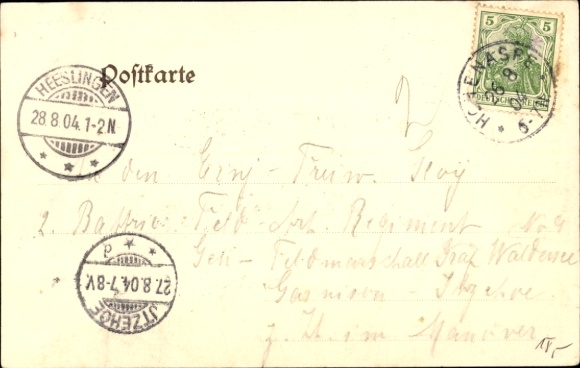 Postkarte
5 5
DEUTSCHES REICH
HOHENASPE
26 8 04
6-7N
HEESLINGEN
28 8.04.1-2N.
An den Einj- Freiw.
2. Battrie Feld-Art. Regiment No 9
Gen- Feldmarschall Graf Waldersee
Garnison - Itzehoe.
z. Zt. im Manöver
ITZEHOE
27.8.04.7-8V.
18,-